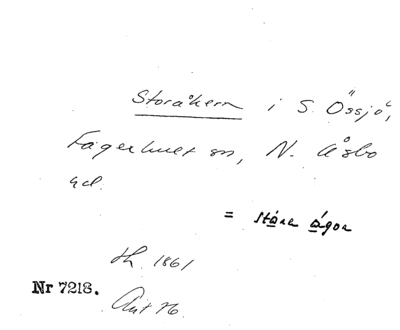 Storåkern i S. Össjö,
Fagerhult sn, N. Åsbo
hd.
= ståra ågor
th. 1861
Nr 7218.
Ant 76.